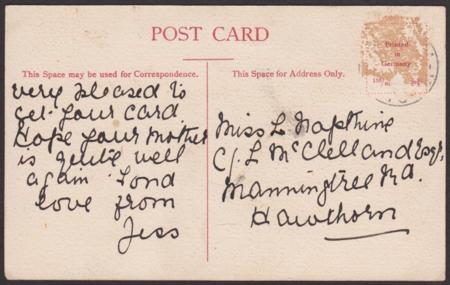 POST CARD
This Space may be used for Correspondence.
This Space for Address Only.
Printed
in
Germany
very pleased to
get your card
Hope your Mother
is quite well
again Fond
love from
Jess
Miss L Napthine
C/. L McClelland Esq.
Manningtree Rd.
Hawthorn